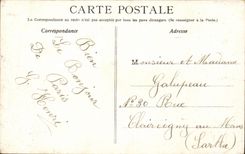 CARTE POSTALE
La Correspondance au recto n'est pas acceptée par tous les pays étrangers (Se renseigner à la Poste).
Correspondance
Adresse
Bien
Le Bonjour
De Paris
G Henri
Monsieur et Madame
Galupeau
N° 80 Rue
au Mans
(Sarthe)